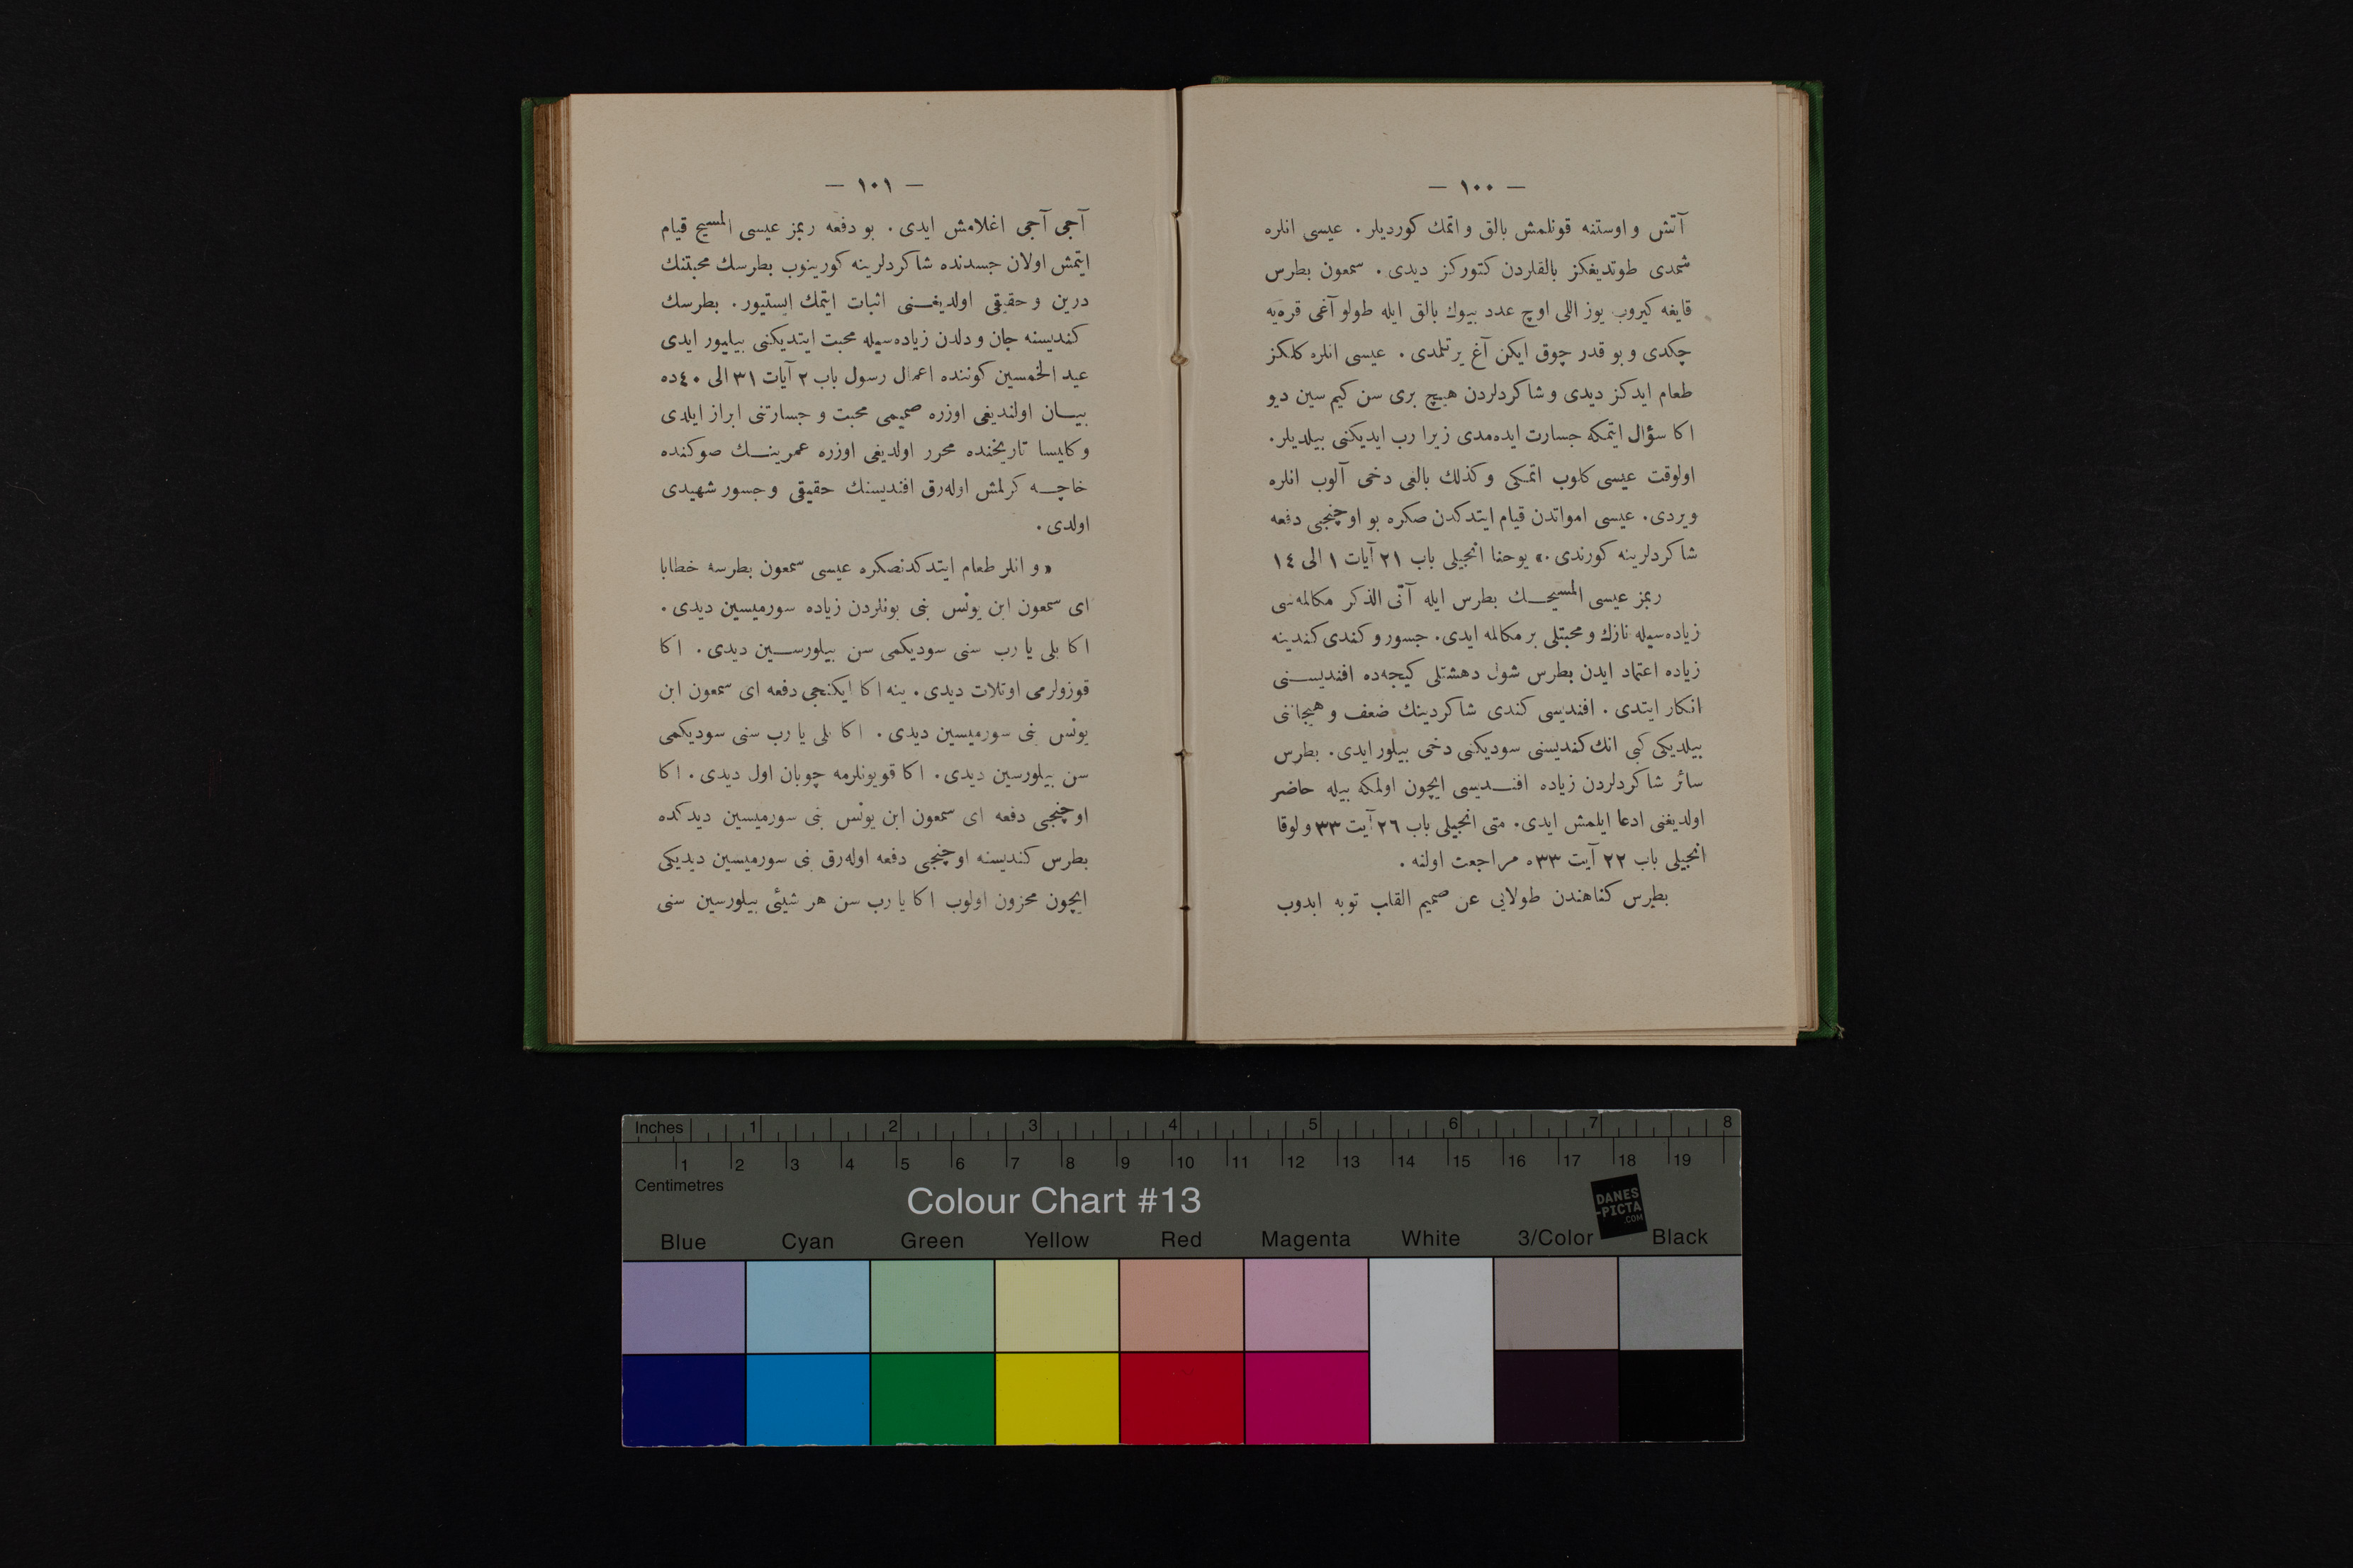 — ١٠٠ —
آتش و اوستنه قونلمش بالق و اتمك كورديلر. عيسى انلره
شمدى طوتديغكز بالقلردن كتوركز ديدى. سمعون بطرس
قايغه كيروب يوز اللى اوچ عدد بيوك بالق ايله طولو آغى قره‌يه
چكدى و بو قدر چوق ايكن آغ يرتلمدى. عيسى انلره كلكز
طعام ايدكز ديدى و شاكردلردن هيچ برى سن كيم سين ديو
اكا سؤال ايتمكه جسارت ايده‌مدى زيرا رب ايديكنى بيلديلر.
اولوقت عيسى كلوب اتمكى و كذلك بالغى دخى آلوب انلره
ويردى. عيسى امواتدن قيام ايتدكدن صكره بو اوچنجى دفعه
شاكردلرينه كورندى.» يوحنا انجيلى باب ٢١ آيات ١ الى ١٤
ربمز عيسى المسيحـــك بطرس ايله آتى الذكر مكالمه‌سى
زياده‌سيله نازك و محبتلى بر مكالمه ايدى. جسور و كندى كندينه
زياده اعتماد ايدن بطرس شول دهشتلى كيجه‌ده افنديســنى
انكار ايتدى. افنديسى كندى شاكردينك ضعف و هيجاننى
بيلديكى كبى انك كنديسنى سوديكنى دخى بيلور ايدى. بطرس
سائر شاكردلردن زياده افنــديسى ايچون اولمكه بيله حاضر
اولديغنى ادعا ايلمش ايدى. متى انجيلى باب ٢٦ آيت ٣٣ و لوقا
انجيلى باب ٢٢ آيت ٣٣ه مراجعت اولنه.
بطرس كناهندن طولايى عن صميم القلب توبه ايدوب
— ١٠١ —
آجى آجى اغلامش ايدى. بو دفعه ربمز عيسى المسيح قيام
ايتمش اولان جسدنده شاكردلرينه كورينوب بطرسك محبتنك
درين و حقيقى اولديغــنى اثبات ايتمك ايستيور. بطرسك
كنديسنه جان و دلدن زياده‌سيله محبت ايتديكنى بيليور ايدى
عيد الخمسين كوننده اعمال رسول باب ٢ آيات ٣١ الى ٤٠ده
بيــان اولنديغى اوزره صميمى محبت و جسارتنى ابراز ايلدى
و كليسا تاريخنده محرر اولديغى اوزره عمرينــك صوكنده
خاچــه كرلمش اوله‌رق افنديسنك حقيقى و جسور شهيدى
اولدى.
«و انلر طعام ايتدكدنصكره عيسى سمعون بطرسه خطابا
اى سمعون ابن يونس بنى بونلردن زياده سورميسين ديدى.
اكا بلى يا رب سنى سوديكمى سن بيلورســين ديدى. اكا
قوزولرمى اوتلات ديدى. ينه اكا ايكنجى دفعه اى سمعون ابن
يونس بنى سورميسين ديدى. اكا بلى يا رب سنى سوديكمى
سن بيلورسين ديدى. اكا قويونلرمه چوبان اول ديدى. اكا
اوچنجى دفعه اى سمعون ابن يونس بنى سورميسين ديدكده
بطرس كنديسنه اوچنجى دفعه اوله‌رق بنى سورميسين ديديكى
ايچون محزون اولوب اكا يا رب سن هر شيئى بيلورسين سنى
Inches 1 2 3 4 5 6 7 8
1 2 3 4 5 6 7 8 9 10 11 12 13 14 15 16 17 18 19
Centimetres
Colour Chart #13
DANES
-PICTA
.COM
Blue Cyan Green Yellow Red Magenta White 3/Color Black